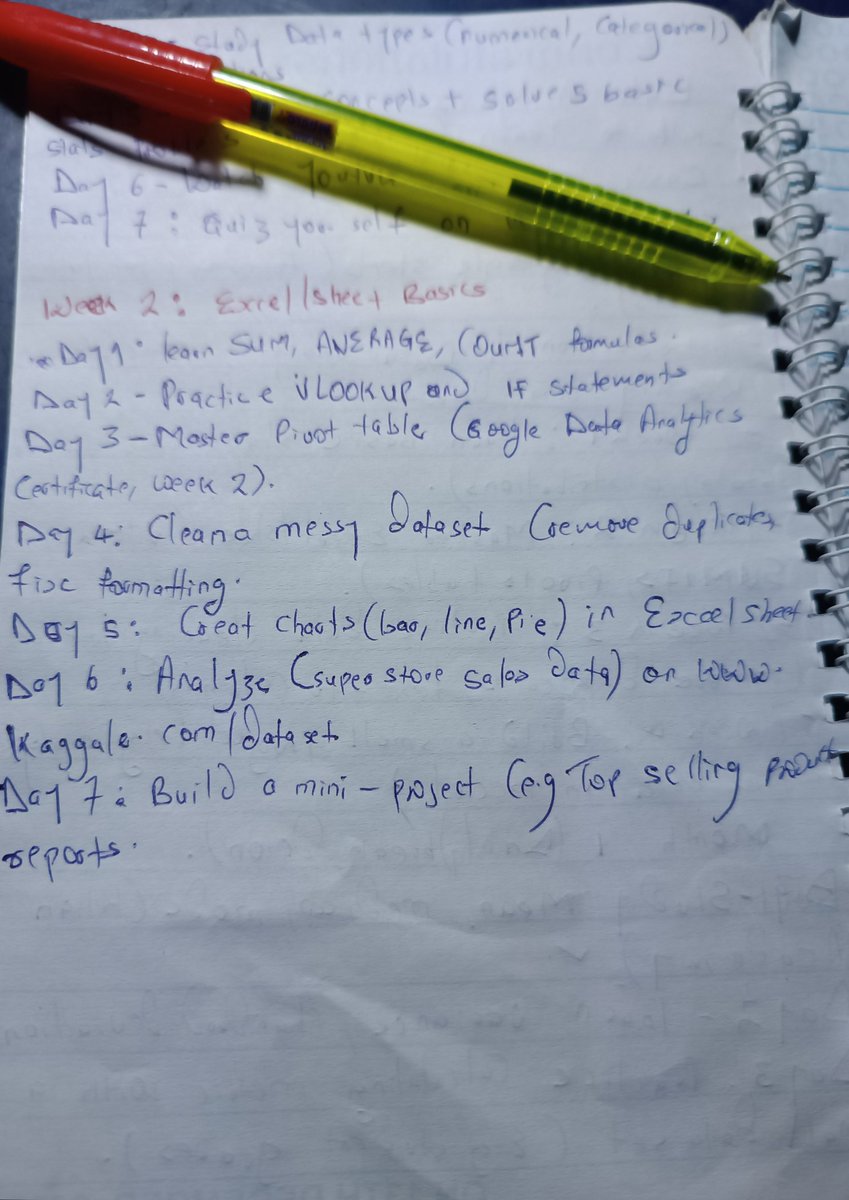 study Data types (numerical, Categorical)
concepts + solve 5 basic
Day 6 -
Day 7 : Quiz your self on
Week 2 : Excel/sheet Basics
Day 1 : learn SUM, AVERAGE, COUNT formulas.
Day 2 - Practice VLOOKUP and IF statements
Day 3 - Master Pivot table (Google Data Analytics
Certificate, week 2).
Day 4: Clean a messy dataset (remove duplicates,
fix formatting.
Day 5: Creat charts (bar, line, Pie) in Excel sheet
Day 6 : Analyze (super store sales data) on www.
Kaggale.com/dataset
Day 7 : Build a mini - project (e.g Top selling product
reports.